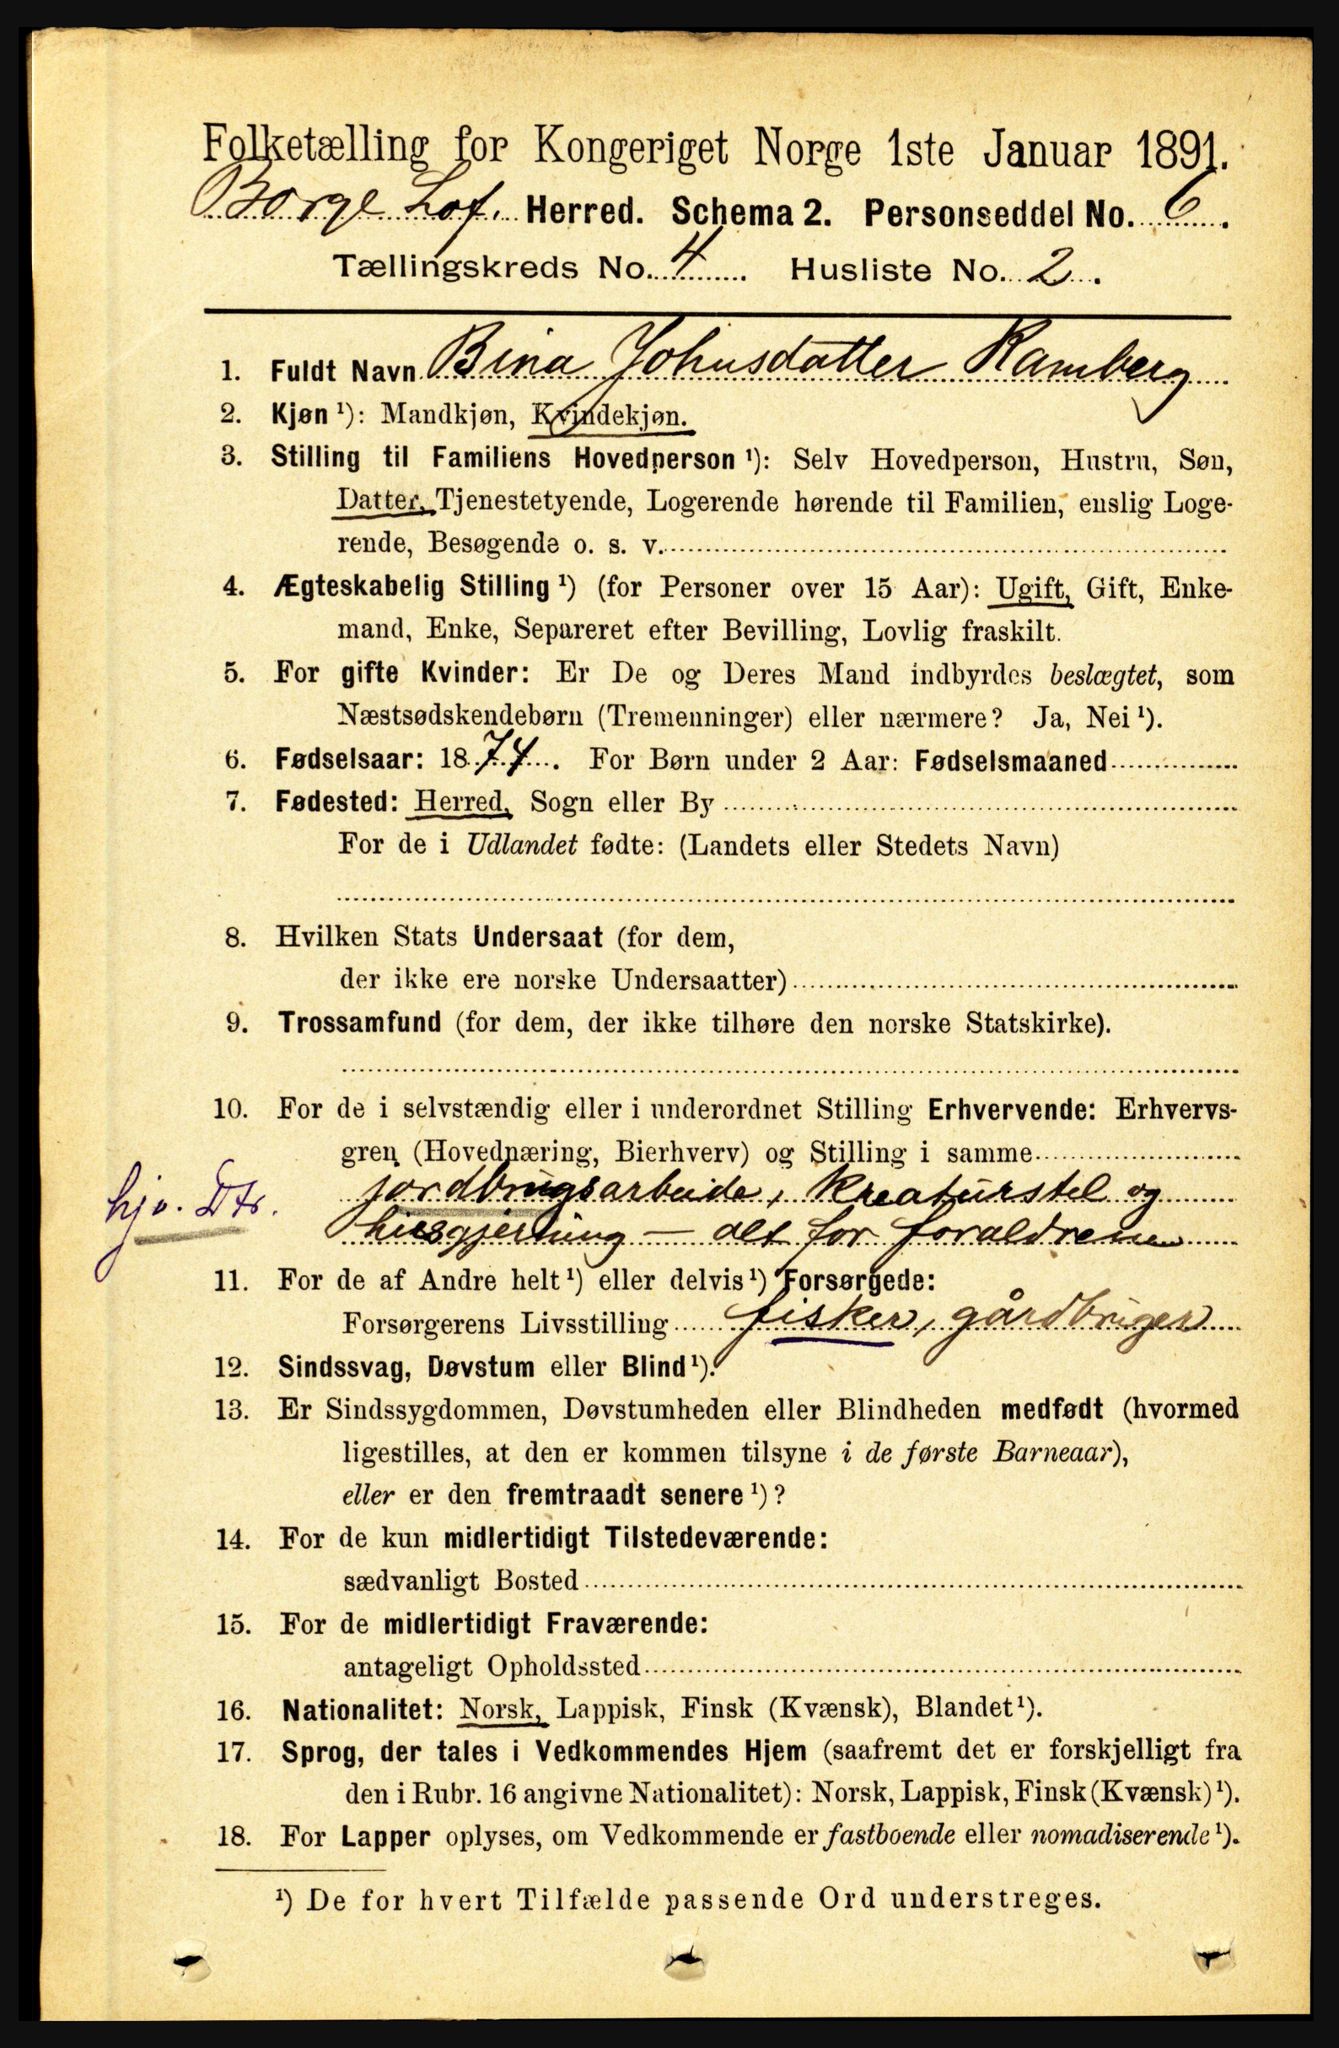 Folketælling for Kongeriget Norge 1ste Januar 1891.
Borge Lof. Herred. Schema 2. Personseddel No. 6.
Tællingskreds No. 4. Husliste No. 2.
1. Fuldt Navn Bina Johnsdatter Ramberg
2. Kjøn ¹): Mandkjøn, Kvindekjøn.
3. Stilling til Familiens Hovedperson ¹): Selv Hovedperson, Hustru, Søn,
Datter, Tjenestetyende, Logerende hørende til Familien, enslig Loge-
rende, Besøgende o. s. v.
4. Ægteskabelig Stilling ¹) (for Personer over 15 Aar): Ugift, Gift, Enke-
mand, Enke, Separeret efter Bevilling, Lovlig fraskilt.
5. For gifte Kvinder: Er De og Deres Mand indbyrdes beslægtet, som
Næstsødskendebørn (Tremenninger) eller nærmere? Ja, Nei ¹).
6. Fødselsaar: 1874. For Børn under 2 Aar: Fødselsmaaned
7. Fødested: Herred, Sogn eller By
For de i Udlandet fødte: (Landets eller Stedets Navn)
8. Hvilken Stats Undersaat (for dem,
der ikke ere norske Undersaatter)
9. Trossamfund (for dem, der ikke tilhøre den norske Statskirke).
10. For de i selvstændig eller i underordnet Stilling Erhvervende: Erhvervs-
gren (Hovednæring, Bierhverv) og Stilling i samme
hjv. Dtr. jordbrugsarbeide, kreaturstel og
husgjerning – alt for forældrene
11. For de af Andre helt ¹) eller delvis ¹) Forsørgede:
Forsørgerens Livsstilling fisker, gårdbruger
12. Sindssvag, Døvstum eller Blind ¹).
13. Er Sindssygdommen, Døvstumheden eller Blindheden medfødt (hvormed
ligestilles, at den er kommen tilsyne i de første Barneaar),
eller er den fremtraadt senere ¹)?
14. For de kun midlertidigt Tilstedeværende:
sædvanligt Bosted
15. For de midlertidigt Fraværende:
antageligt Opholdssted
16. Nationalitet: Norsk, Lappisk, Finsk (Kvænsk), Blandet ¹).
17. Sprog, der tales i Vedkommendes Hjem (saafremt det er forskjelligt fra
den i Rubr. 16 angivne Nationalitet): Norsk, Lappisk, Finsk (Kvænsk) ¹).
18. For Lapper oplyses, om Vedkommende er fastboende eller nomadiserende ¹).
¹) De for hvert Tilfælde passende Ord understreges.